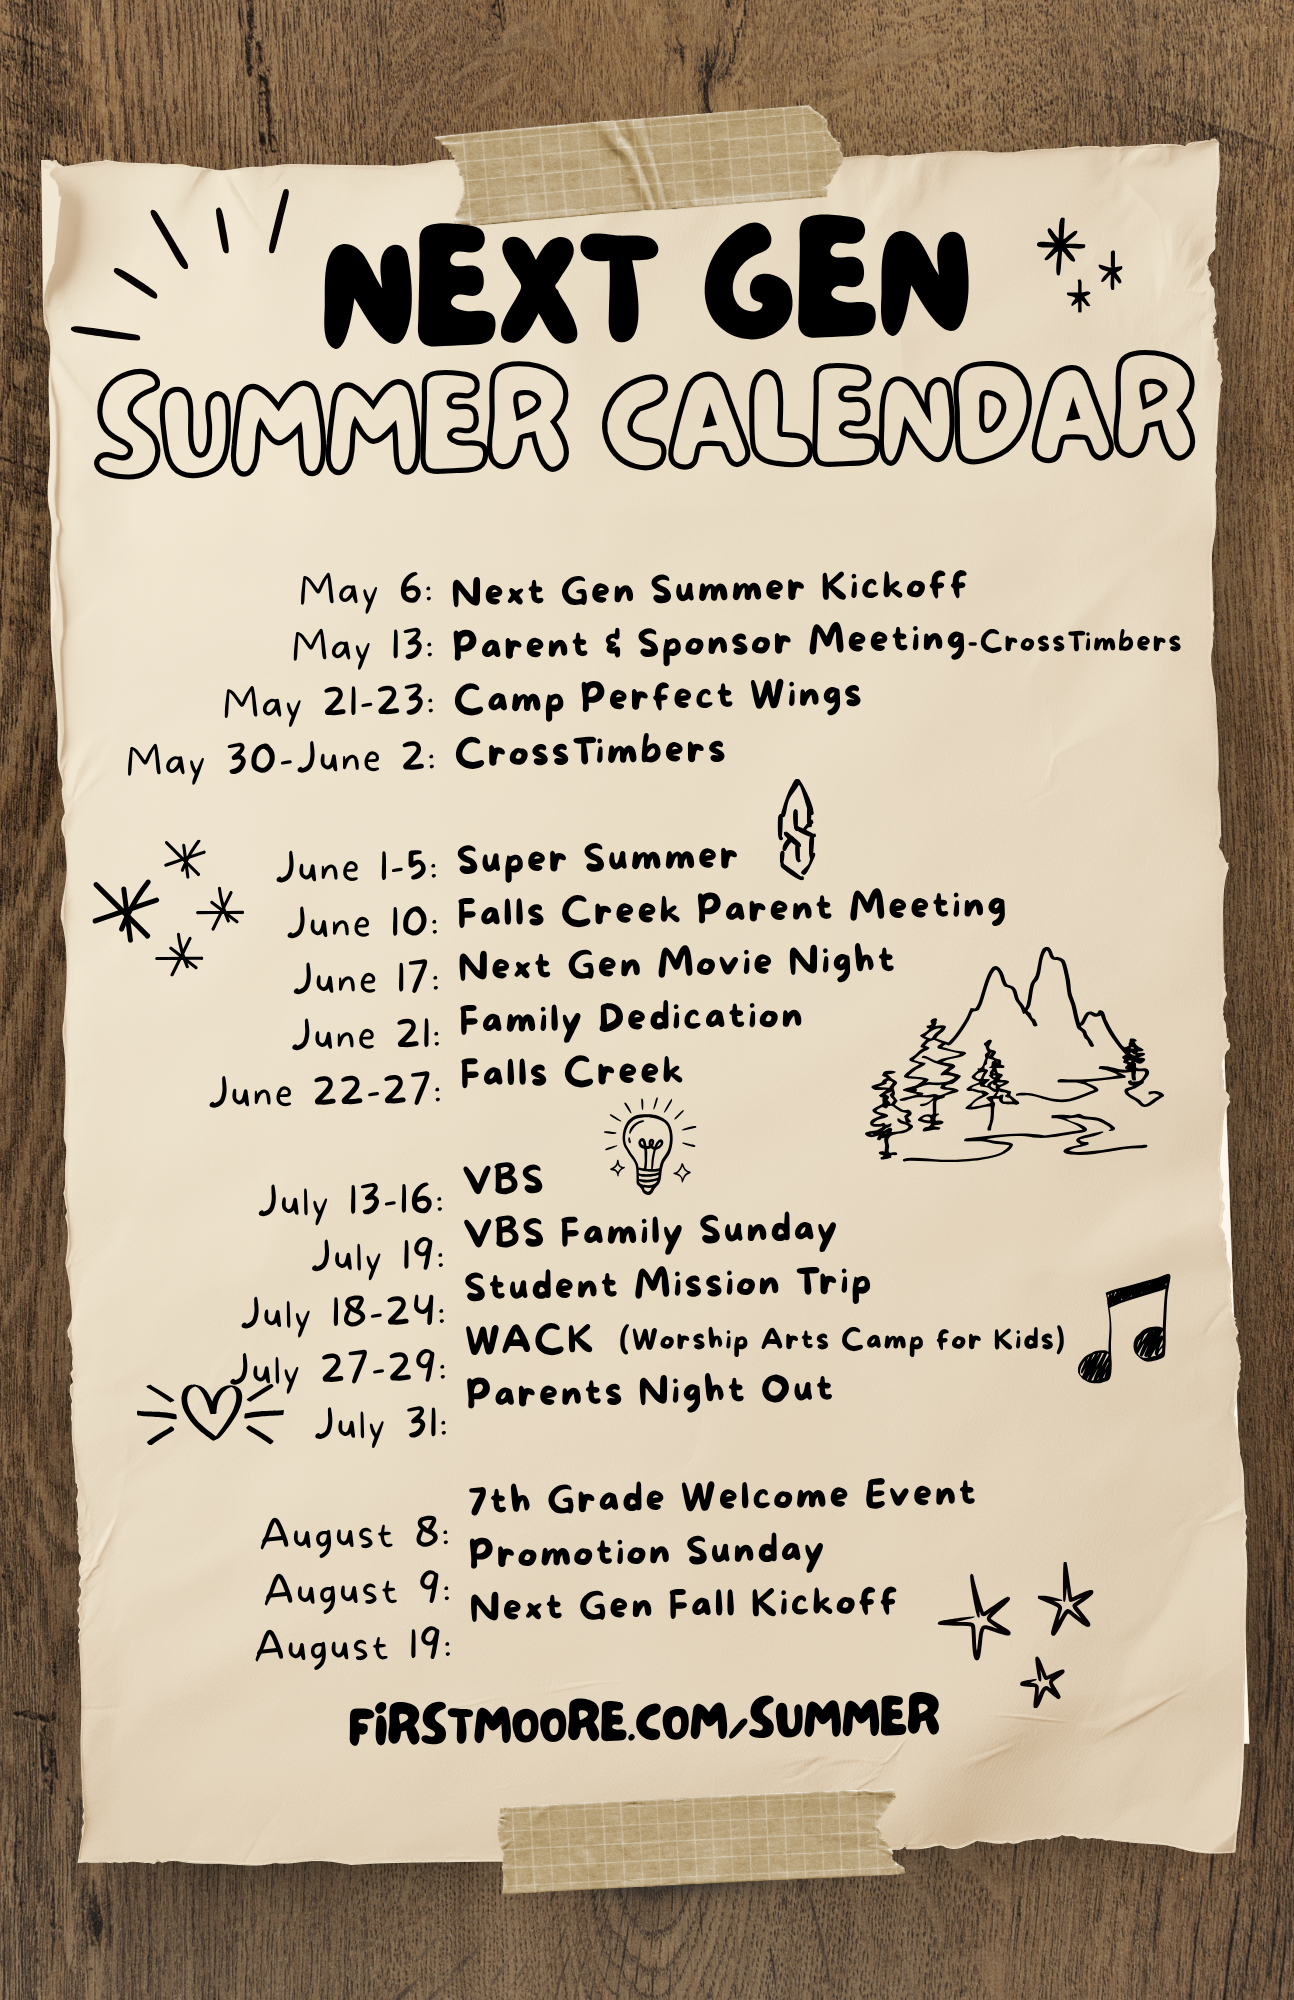 NEXT GEN
SUMMER CALENDAR
May 6: Next Gen Summer Kickoff
May 13: Parent & Sponsor Meeting-CrossTimbers
May 21-23: Camp Perfect Wings
May 30-June 2: CrossTimbers
June 1-5: Super Summer
June 10: Falls Creek Parent Meeting
June 17: Next Gen Movie Night
June 21: Family Dedication
June 22-27: Falls Creek
July 13-16: VBS
July 19: VBS Family Sunday
July 18-24: Student Mission Trip
July 27-29: WACK (Worship Arts Camp for Kids)
July 31: Parents Night Out
August 8: 7th Grade Welcome Event
August 9: Promotion Sunday
August 19: Next Gen Fall Kickoff
FiRSTMOORE.COM/SUMMER